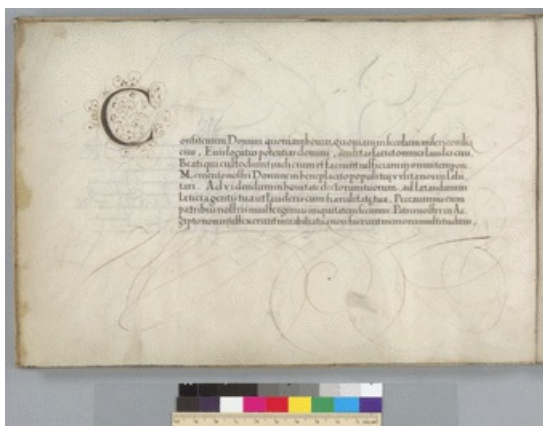 C
onfitemini Domino quoniam bonus, quoniam in seculum misericordia
eius. Quis loquetur potentias domini, auditas faciet omnes laudes eius.
Beati qui custodiunt iudicium et faciunt iustitiam in omni tempore.
Memento nostri Domine in beneplacito populi tui visita nos in salu
tari. Ad videndum in bonitate electorum tuorum, ad laetandum in
laetitia gentis tuae ut lauderis cum haereditate tua. Peccavimus cum
patribus nostris iniuste egimus iniquitatem fecimus. Patres nostri in Ae
gypto non intellexerunt mirabilia tua non fuerunt memores multitudinis